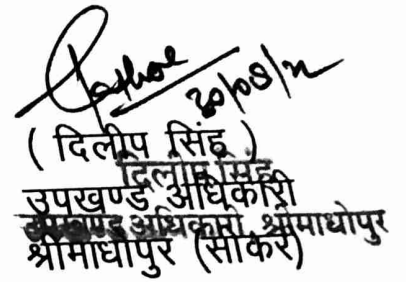 20/08/21
( दिलीप सिंह )
दिलीप सिंह
उपखण्ड अधिकारी
उपखण्ड अधिकारी, श्रीमाधोपुर
श्रीमाधोपुर (सीकर)